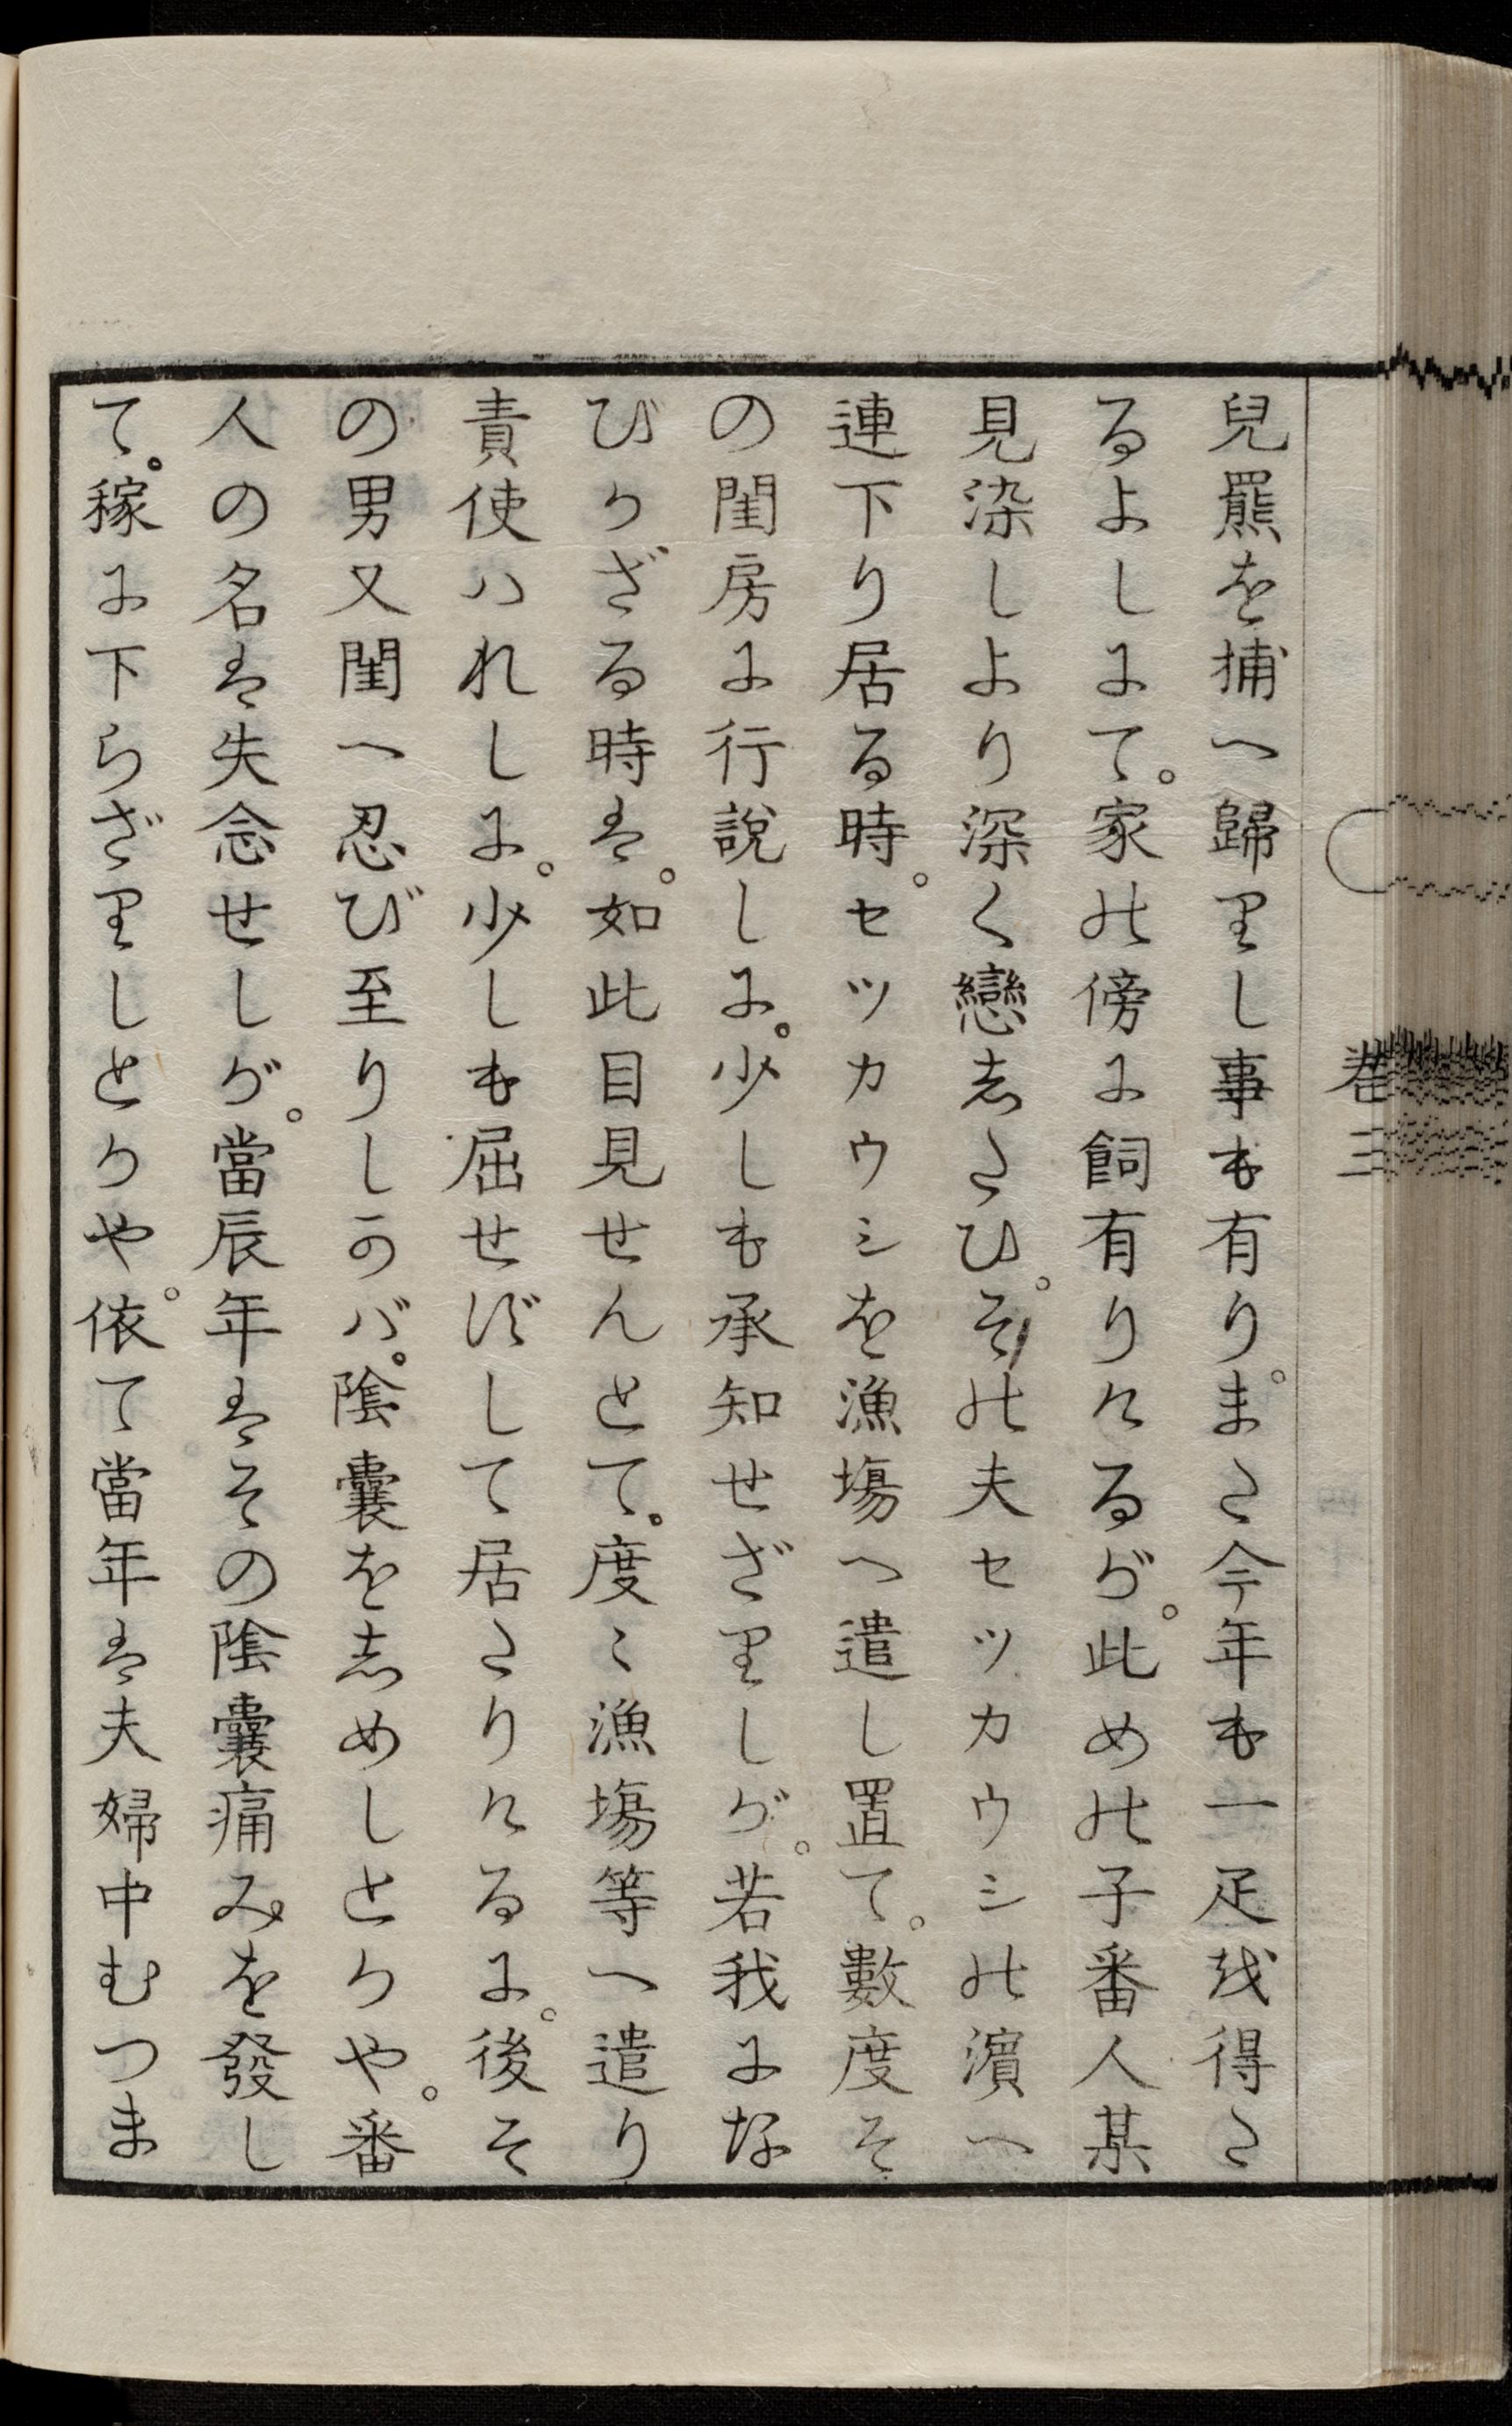 巻三
兒羆を捕へ歸りし事も有り。また今年も一疋を得た
るよしにて。家の傍に飼有りけるが。此めの子番人某
見染しより深く戀したひ。その夫セツカウシの濵へ
連下り居る時。セツカウシを漁塲へ遣し置て。數度そ
の閨房に行説しに。少しも承知せざりしが。若我にな
びかざる時は。如此目見せんとて。度〻漁塲等へ遣り
責使ハれしに。少しも屈せずして居たりけるに。後そ
の男又閨へ忍び至りしかバ。陰囊を志めしとかや。番
人の名は失念せしが。當辰年はその陰囊痛みを發し
て。稼に下らざりしとかや。依て當年は夫婦中むつま